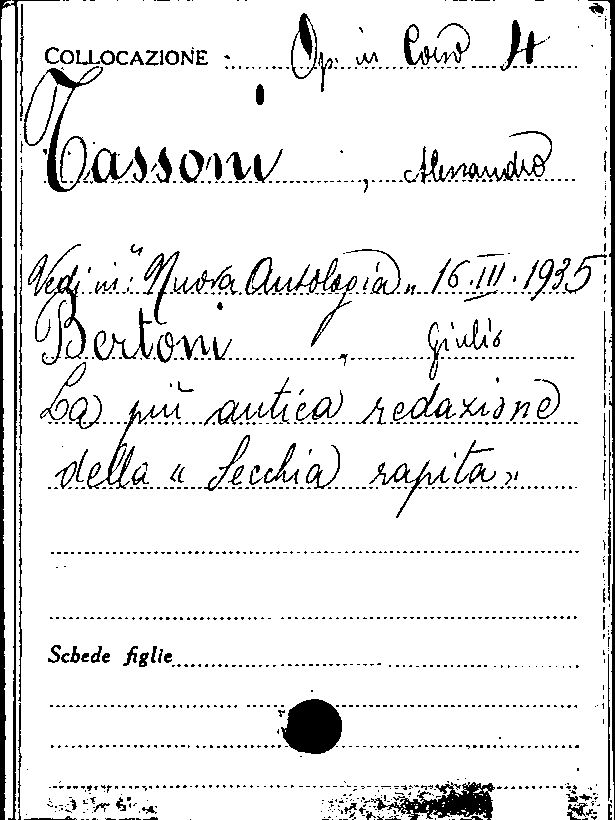 COLLOCAZIONE : Op. in Corso 4
Tassoni, Alessandro
Vedi in: "Nuova Antologia" 16.III.1935
Bertoni, Giulio
La più antica redazione
della « Secchia rapita »
Schede figlie